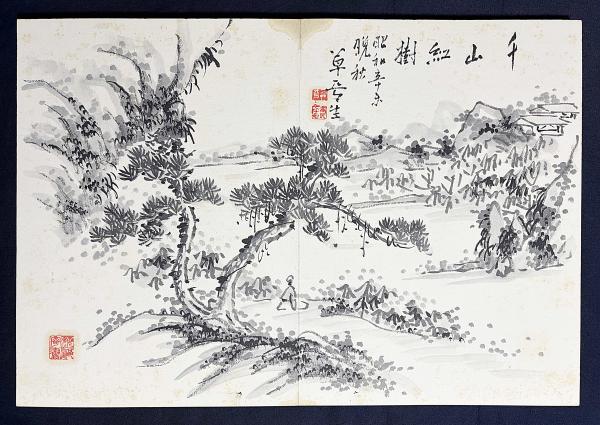 千山紅樹
昭和辛未
晩秋
草
生